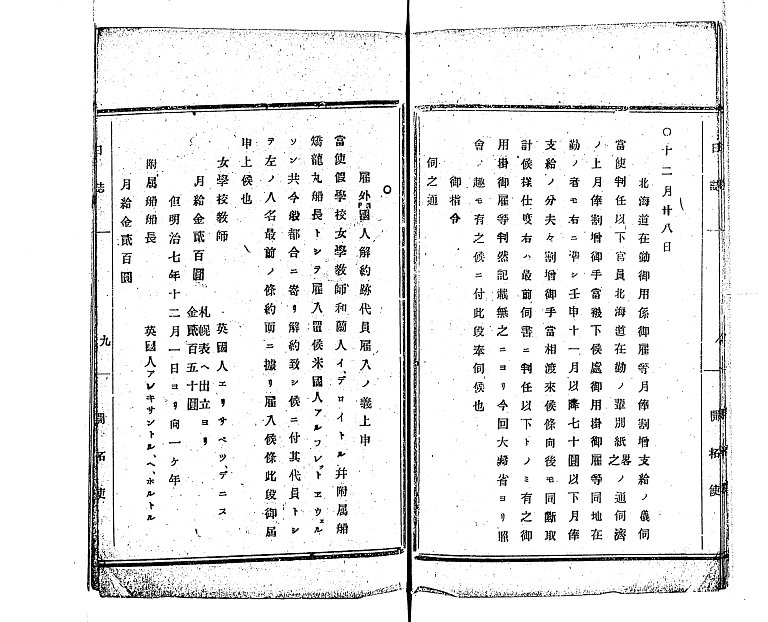 〇十二月廿八日
北海道在勤御用係御雇等月俸割增支給ノ儀伺
當使判任以下官員北海道在勤ノ輩別紙略之ノ通伺濟
ノ上月俸割增御手當被下候處御用掛御雇等同地在
勤ノ者モ右ニ準シ壬申十一月以降七十圓以下月俸
支給ノ分夫々割增御手當相渡來候條向後モ同斷取
計候樣仕度右ハ最前伺書ニ判任以下トノミ有之御
用掛御雇等判然記載無之ニヨリ今回大藏省ヨリ照
會ノ趣モ有之候ニ付此段奉伺候也
御指令
伺之通
日誌
八
開拓使
〇
雇外國人解約跡代員雇入ノ義上申
當使假學校女學敎師和蘭人イ、デロイトル并附属船
矯龍丸船長トシテ雇入置候米國人アルフレット エウェル
ソン共今般都合ニ寄リ解約致シ候ニ付其代員トシ
テ左ノ人名最前ノ條約面ニ據リ雇入候條此段御届
申上候也
女學校敎師 英國人エリサベツ、デニス
月給金貳百圓 札幌表ヘ出立ヨリ金貳百五十圓
但明治七年十二月一日ヨリ向一ヶ年
附属船船長 英國人アレキサントル、ヘ、ホルトル
月給金貳百圓
日誌
九
開拓使